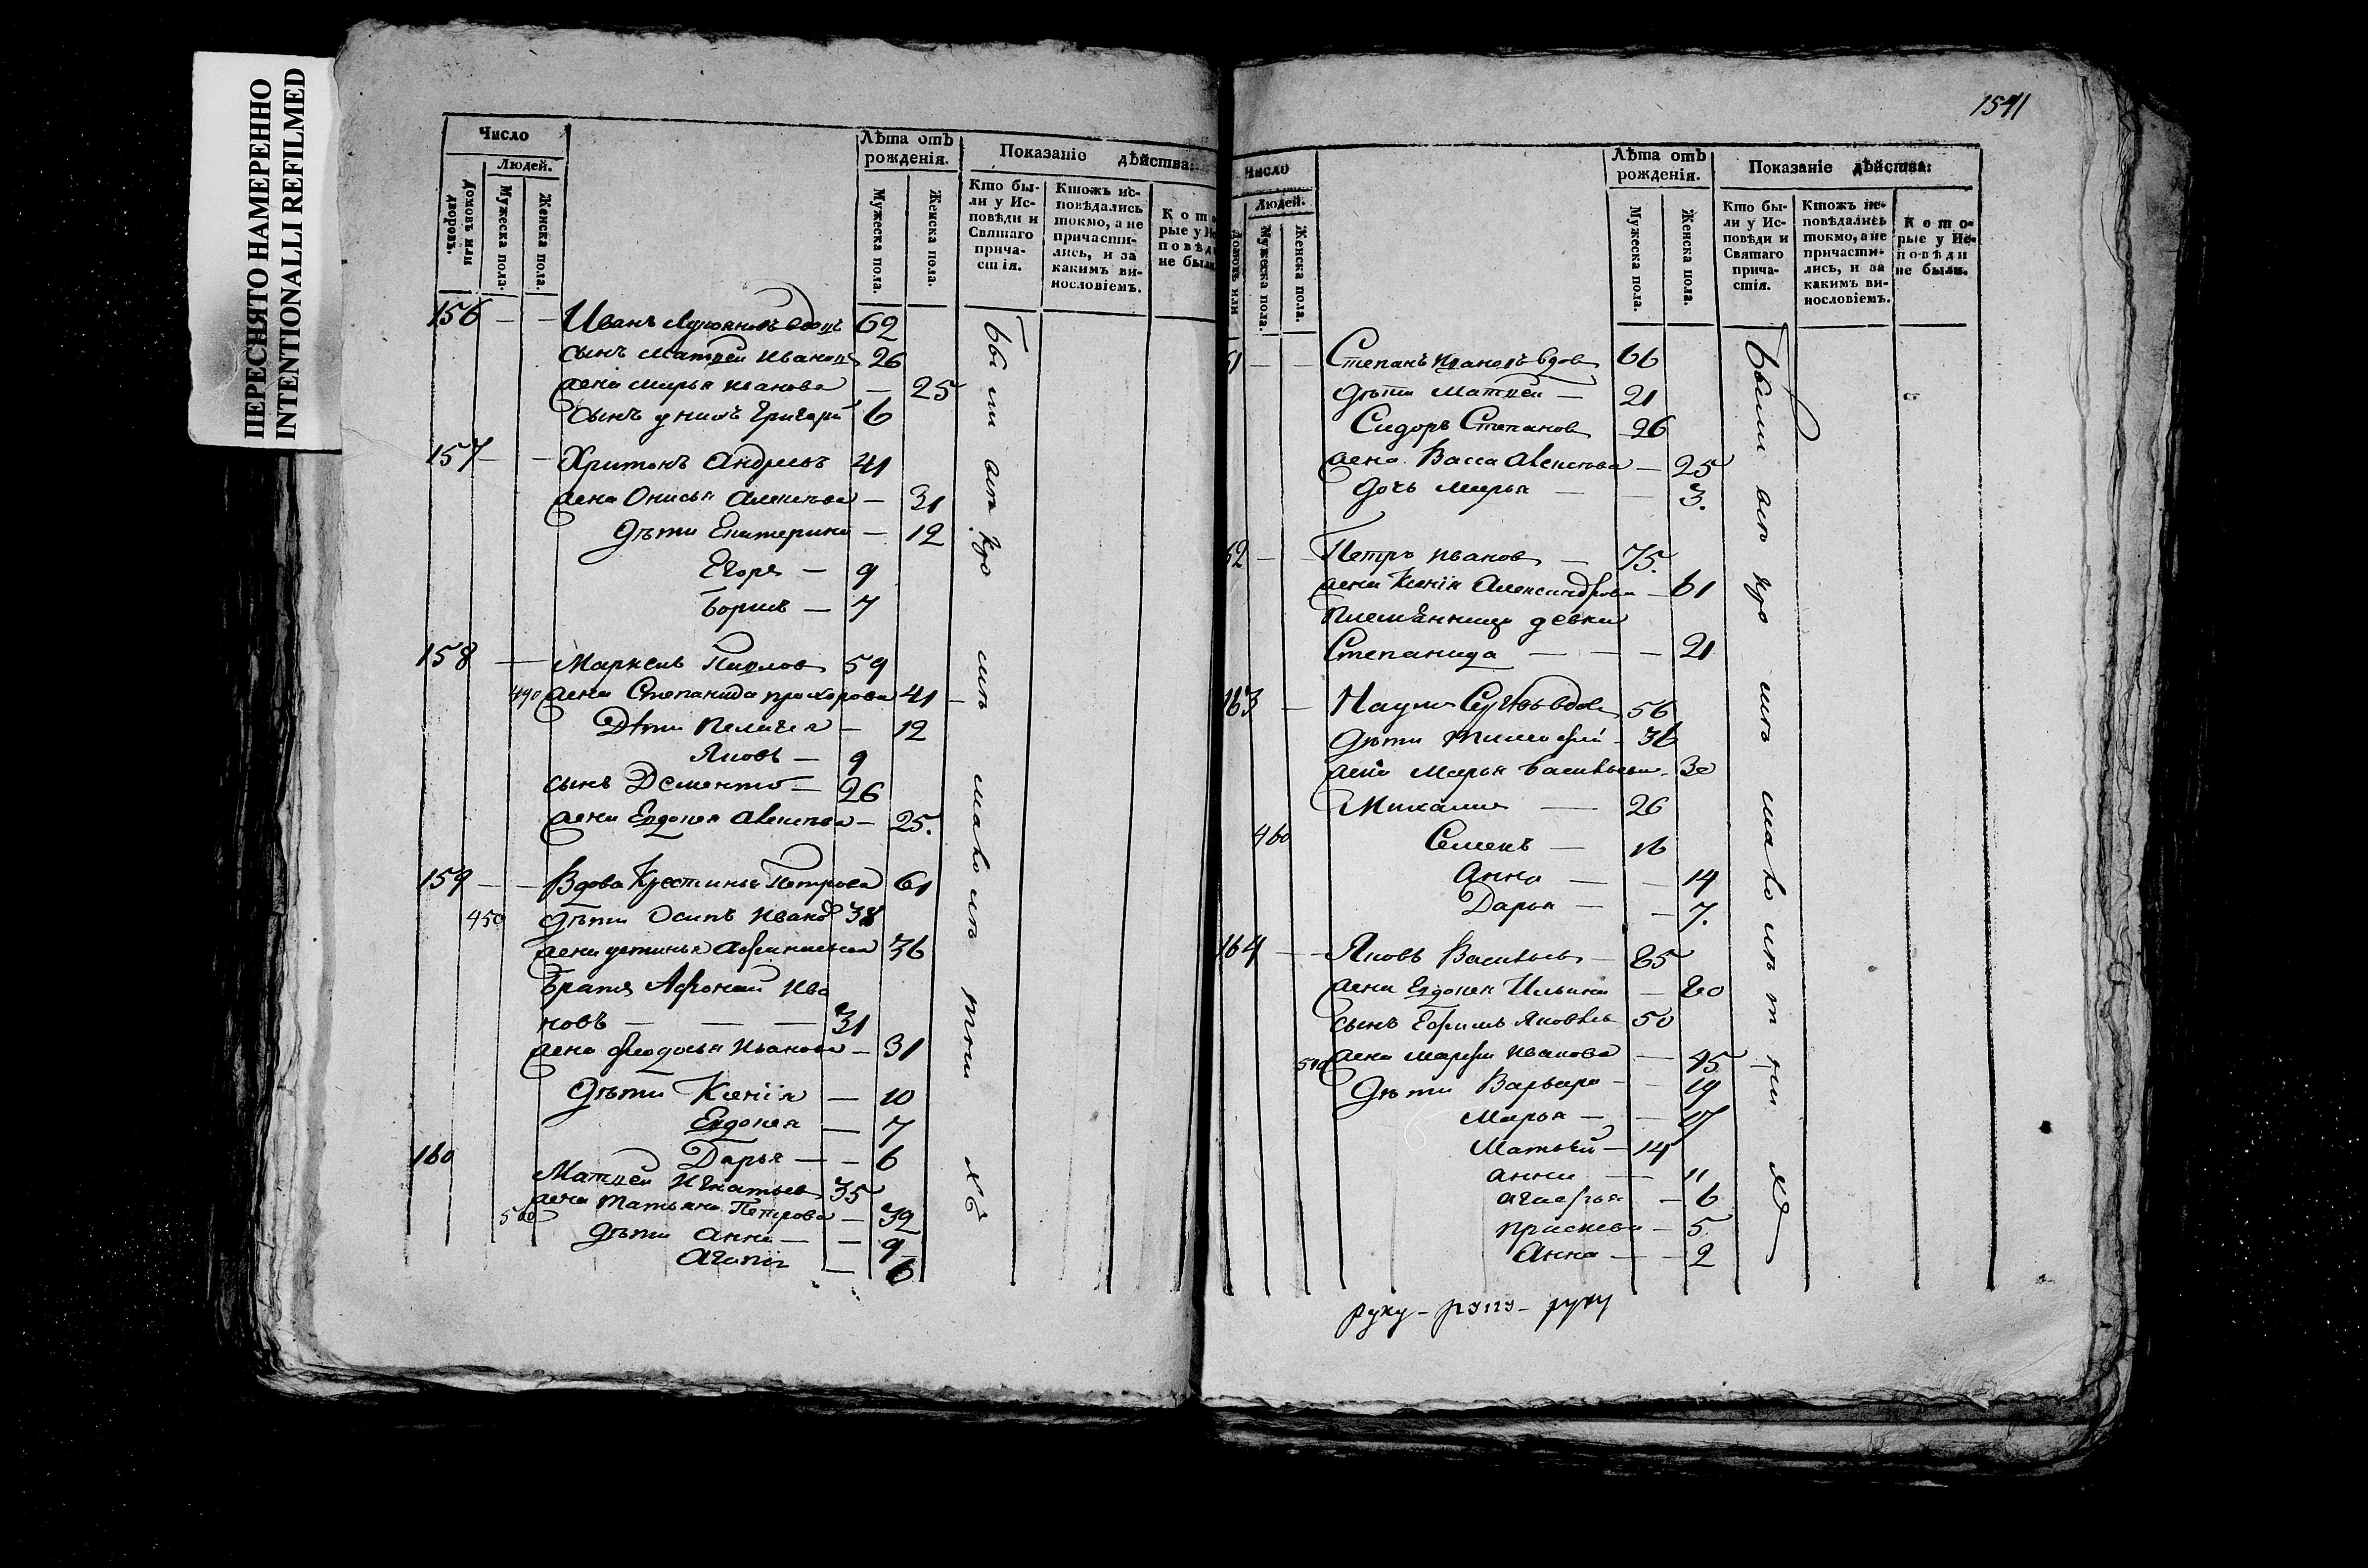 ПЕРЕСНЯТО НАМЕРЕННО
INTENTIONALLI REFILMED
Число
Людей.
Домовъ или дворовъ.
Мужеска пола.
Женска пола.
Лѣта отъ рожденія.
Мужеска пола.
Женска пола.
Показаніе дѣйства:
Кто бы-
ли у Ис-
повѣди и
Святаго
прича-
стія.
Ктожъ ис-
повѣдались
токмо, а не
причасти-
лись, и за
какимъ ви-
нословіемъ.
Кото
рые у Ис
повѣд
не были
156 — — Иванъ вдовъ 62
сынъ Матвей Иванов 26
жена Марья Иванова — 25
сынъ у нихъ Григорй 6
157 — — Харитонъ Андреевъ 41
жена Онисья Алексеева — 31
дѣти Екатерина — 12
Егоръ — 9
Борисъ — 7
158 — Маркелъ Павлов 59
490 жена Степанида Прохорова 41 —
Дѣти Пелагея — 12
Яковъ — 9
сынъ Дементей — 26
жена Евдокея Алексеева — 25.
159 — — Вдова Крестинья Петрова 61
450 дѣти Осипъ Иванов 38
жена Устинья 36
братъ Афонасей Ива
новъ — — — 31
жена Феодосья Иванова — 31
дѣти Ксенія — 10
Евдокея — 7
Дарья — — 6
160 Матвей Игнатьев 35
500 жена Татьяна Петрова — 32
дѣти Анна — — 9
Агапія — 6
Были
1541
Число
Людей.
Домовъ или
Мужеска пола.
Женска пола.
Лѣта отъ рожденія.
Мужеска пола.
Женска пола.
Показаніе дѣйства:
Кто бы-
ли у Ис-
повѣди и
Святаго
прича-
стія.
Ктожъ ис-
повѣдались
токмо, а не
причасти-
лись, и за
какимъ ви-
нословіемъ.
Кото-
рые у Ис-
повѣди
не были.
61 — — Степанъ Ивановъ вдов 66
дѣти Матвей — 21
Сидоръ Степанов 26
жена Васса Алексеева — 25
дочь Марья — — 3.
62 — — Петръ Иванов — 75.
жена Ксенія Александрова — 61
племянница девка
Степанида — — — 21
163 — Наум вдов 56
дѣти Тимофей — 36
жена Марья Васильева — 30
Михаила — 26
460 Семенъ — 16
Анна — — 14
Дарья — — 7.
164 — — Яковъ Васильев — 85
жена Евдокея Ильина — 80
сынъ Ефимъ Яковлев 50
510 жена Марфа Иванова — 45
дѣти Варвара — — 19
Марья — — 17
Матвѣй — 14
Анна — 11
Агафья — 6
Прасковья — 5
Анна — — 2
Были
руку — руку